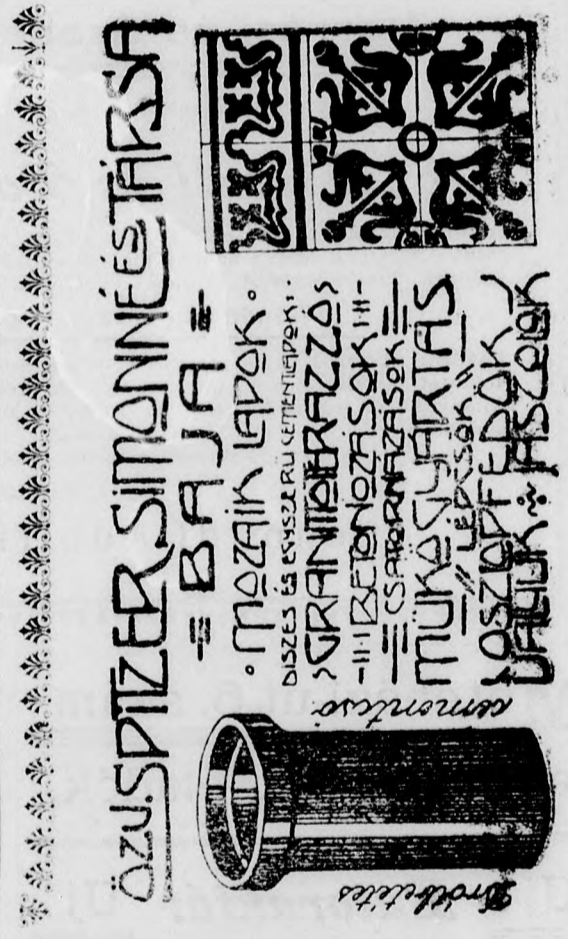 ÖZV. SPITZER SIMONNÉ ÉS TÁRSA
BAJA
MOZAIK LAPOK.
DISZES ÉS EGYSZERÜ CEMENTLAPOK.
GRANITOTERAZZÓ
BETONOZÁSOK
CSATORNAZÁSOK
MÜKÖGYÁRTÁS
LÉPCSÖK
OSZOPFEDÖK
VALYUK JÁSZOLOK
Drótbetétes
cementcsö